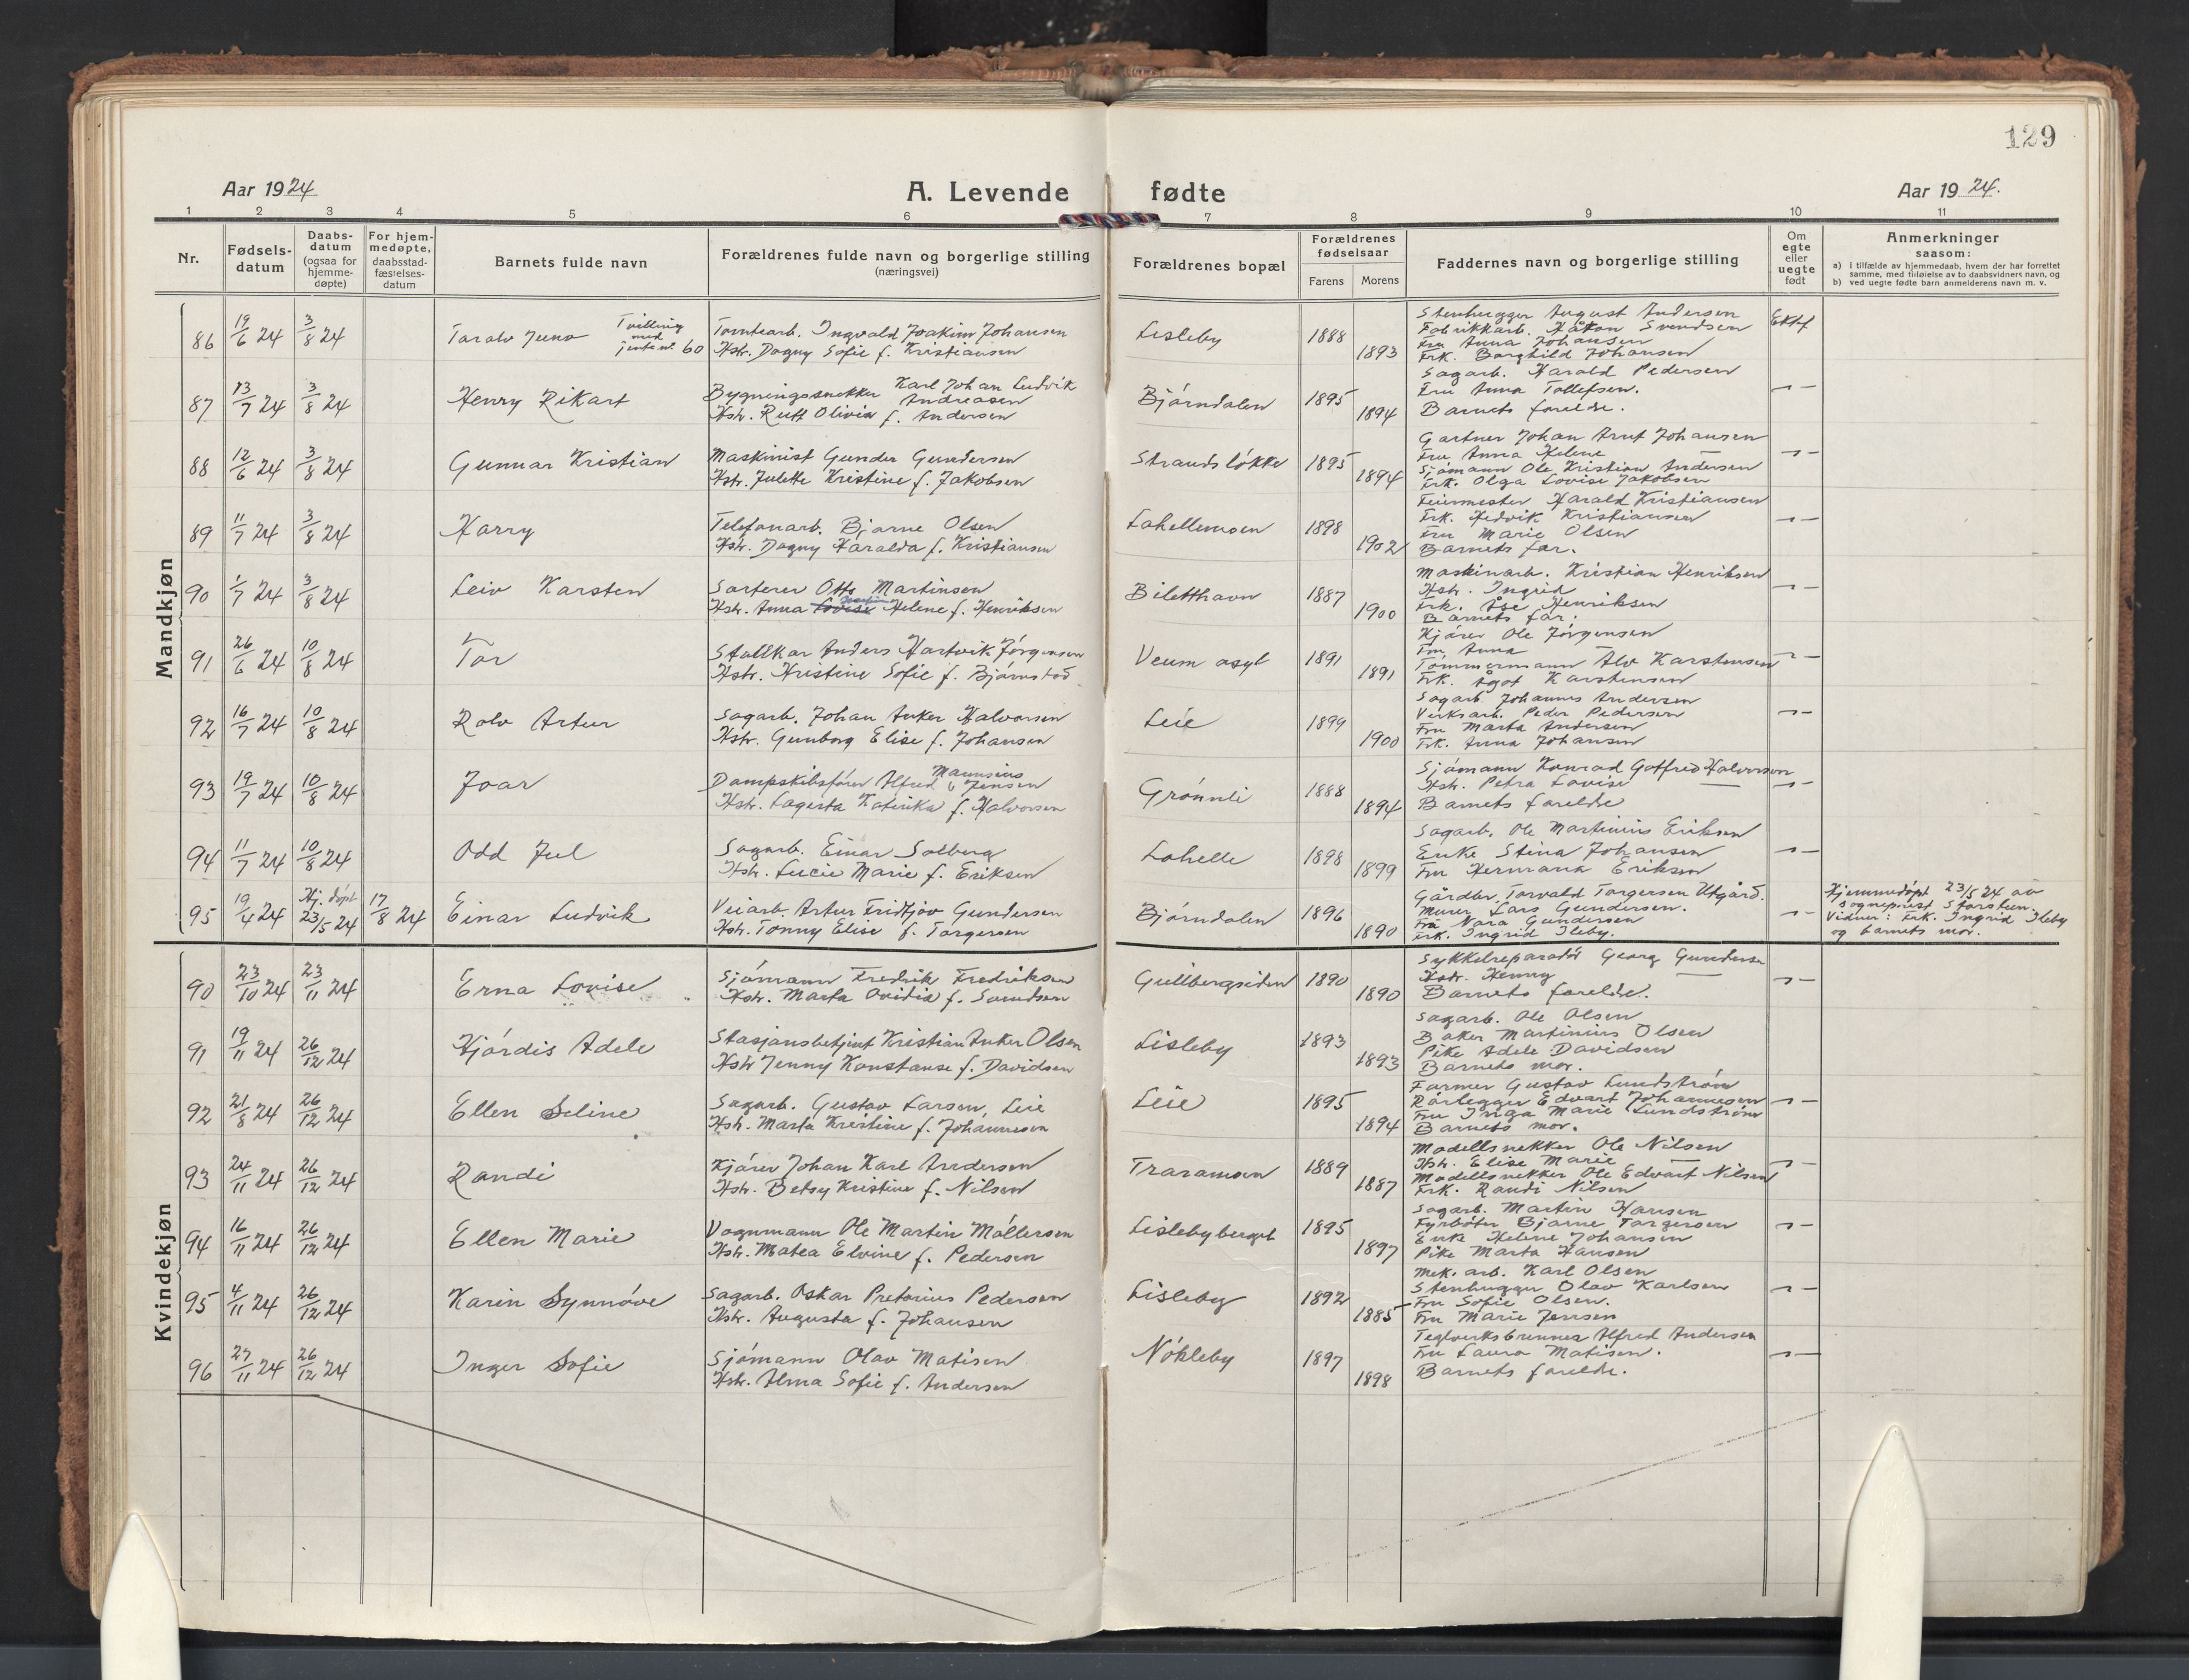 129
Aar 1924
A. Levende fødte
Aar 1924.
1 2 3 4 5 6 7 8 9 10 11
Nr.
Fødsels-
datum
Daabs-
datum
(ogsaa for
hjemme-
døpte)
For hjem-
medøpte,
daabsstad-
fæstelses-
datum
Barnets fulde navn
Forældrenes fulde navn og borgerlige stilling
(næringsvei)
Forældrenes bopæl
Forældrenes
fødselsaar
Farens Morens
Faddernes navn og borgerlige stilling
Om
egte
eller
uegte
født
Anmerkninger
saasom:
a) i tilfælde av hjemmedaab, hvem der har forrettet
samme, med tilføielse av to daabsvidners navn, og
b) ved uegte fødte barn anmelderens navn m. v.
Mandkjøn
86 19/6 24 3/8 24 Taralv Juno Tvilling
med
jente nr. 60
Tomtearb. Ingvald Joakim Johansen
Hstr. Dagny Sofie f. Kristiansen
Lisleby 1888 1893
Stenhugger August Andersen
Fabrikkarb. Håkon Svendsen
Fru Anna Johansen
Frk. Borghild Johansen
Ekte
87 13/7 24 3/8 24 Henry Rikart
Bygningssnekker Karl Johan Ludvik
Andreasen
Hstr. Rutt Olivia f. Andersen
Bjørndalen 1895 1894
Sagarb. Harald Pedersen
Fru Anna Tollefsen.
Barnets forelde.
88 12/6 24 3/8 24 Gunnar Kristian
Maskinist Gunder Gundersen
Hstr. Julette Kristine f. Jakobsen
Strandsløkke 1895 1894
Gartner Johan Arnt Johansen
Fru Anna Helene
Sjømann Ole Kristian Andersen
Frk. Olga Lovise Jakobsen
89 11/7 24 3/8 24 Harry
Telefonarb. Bjarne Olsen
Hstr. Dagny Haralda f. Kristiansen
Lahellemoen 1898 1902
Feiermester Harald Kristiansen
Frk. Hedvik Kristiansen
Fru Marie Olsen
Barnets far.
90 1/7 24 3/8 24 Leiv Karsten
Sorterer Otto Martinsen
Hstr. Anna Lovise Helene f. Henriksen
Biletthavn 1887 1900
Maskinarb. Kristian Henriksen
Hstr. Ingrid
Frk. Åse Henriksen
Barnets far.
91 26/6 24 10/8 24 Tor
Stallkar Anders Hartvik Jørgensen
Hstr. Kristine Sofie f. Bjørnstad
Veum asyl 1891 1891
Kjører Ole Jørgensen
Fru Anna
Tømmermann Alv Karstensen
Frk. Ågot Karstensen
92 16/7 24 10/8 24 Rolv Artur
Sagarb. Johan Anker Halvorsen
Hstr. Gunborg Elise f. Johansen
Leie 1899 1900
Sagarb Johannes Andersen
Verksarb. Peder Pedersen
Fru Marta Andersen
Frk. Anna Johansen
93 19/7 24 10/8 24 Joar
Dampskibsfører Alfred Jensen
Hstr. Lagerta Katerika f. Halvorsen
Grønnli 1888 1894
Sjømann Konrad Gotfred Halvorsen
Hstr. Petra Lovise —
Barnets forelde
94 11/7 24 10/8 24 Odd Jul
Sagarb. Einar Solberg
Hstr. Lucie Marie f. Eriksen
Lahelle 1898 1899
Sagarb. Ole Martinius Eriksen
Enke Stina Johansen
Fru Hermana Eriksen
95 19/4 24 Hj. døpt
23/5 24 17/8 24 Einar Ludvik
Veiarb. Artur Fridtjov Gundersen
Hstr. Tonny Elise f. Torgersen
Bjørndalen 1896 1890
Gårdbr. Torvald Torgersen Utgård.
Murer Lars Gundersen.
Fru Nora Gundersen
Frk. Ingrid Ileby.
Hjemmedøpt 23/5 24 av
sogneprest Storsteen.
Vidner: Frk. Ingrid Ileby
og barnets mor.
Kvindekjøn
90 23/10 24 23/11 24 Erna Lovise
Sjømann Fredrik Fredriksen
Hstr. Marta Ovidia f. Svendsen
Gullbergsiden 1890 1890
Sykkelreparatør Georg Gundersen
Hstr. Henny —
Barnets forelde.
91 19/11 24 26/12 24 Hjørdis Adele
Stasjonsbetjent Kristian Anker Olsen
Hstr Jenny Konstanse f. Davidsen
Lisleby 1893 1893
Sagarb. Ole Olsen
Baker Martinius Olsen
Pike Adele Davidsen
Barnets mor.
92 21/8 24 26/12 24 Ellen Seline
Sagarb. Gustav Larsen, Leie
Hstr. Marta Kristine f. Johannesen
Leie 1895 1894
Farmer Gustav Lundstrøm
Rørlegger Edvart Johannesen
Fru Inga Marie Lundstrøm
Barnets mor.
93 24/11 24 26/12 24 Randi
Kjører Johan Karl Andersen
Hstr. Betsy Kristine f. Nilsen
Traramoen 1889 1887
Modellsnekker Ole Nilsen
Hstr. Elise Marie —
Modellsnekker Ole Edvart Nilsen
Frk. Randi Nilsen
94 16/11 24 26/12 24 Ellen Marie
Vognmann Ole Martin Møllersen
Hstr. Matea Elvine f. Pedersen
Lislebyberget 1895 1897
Sagarb. Martin Hansen
Fyrbøter Bjarne Torgersen
Enke Helene Johansen
Pike Marta Hansen
95 4/11 24 26/12 24 Karin Synnøve
Sagarb. Oskar Pretorius Pedersen
Hstr. Augusta f. Johansen
Lisleby 1892 1885
Mek. arb. Karl Olsen
Stenhugger Olav Karlsen
Fru Sofie Olsen.
Fru Marie Jensen
96 27/11 24 26/12 24 Inger Sofie
Sjømann Olav Matisen
Hstr. Alma Sofie f. Andersen
Nøkleby 1897 1898
Teglverksbrenner Alfred Andersen
Fru Laura Matisen.
Barnets forelde.